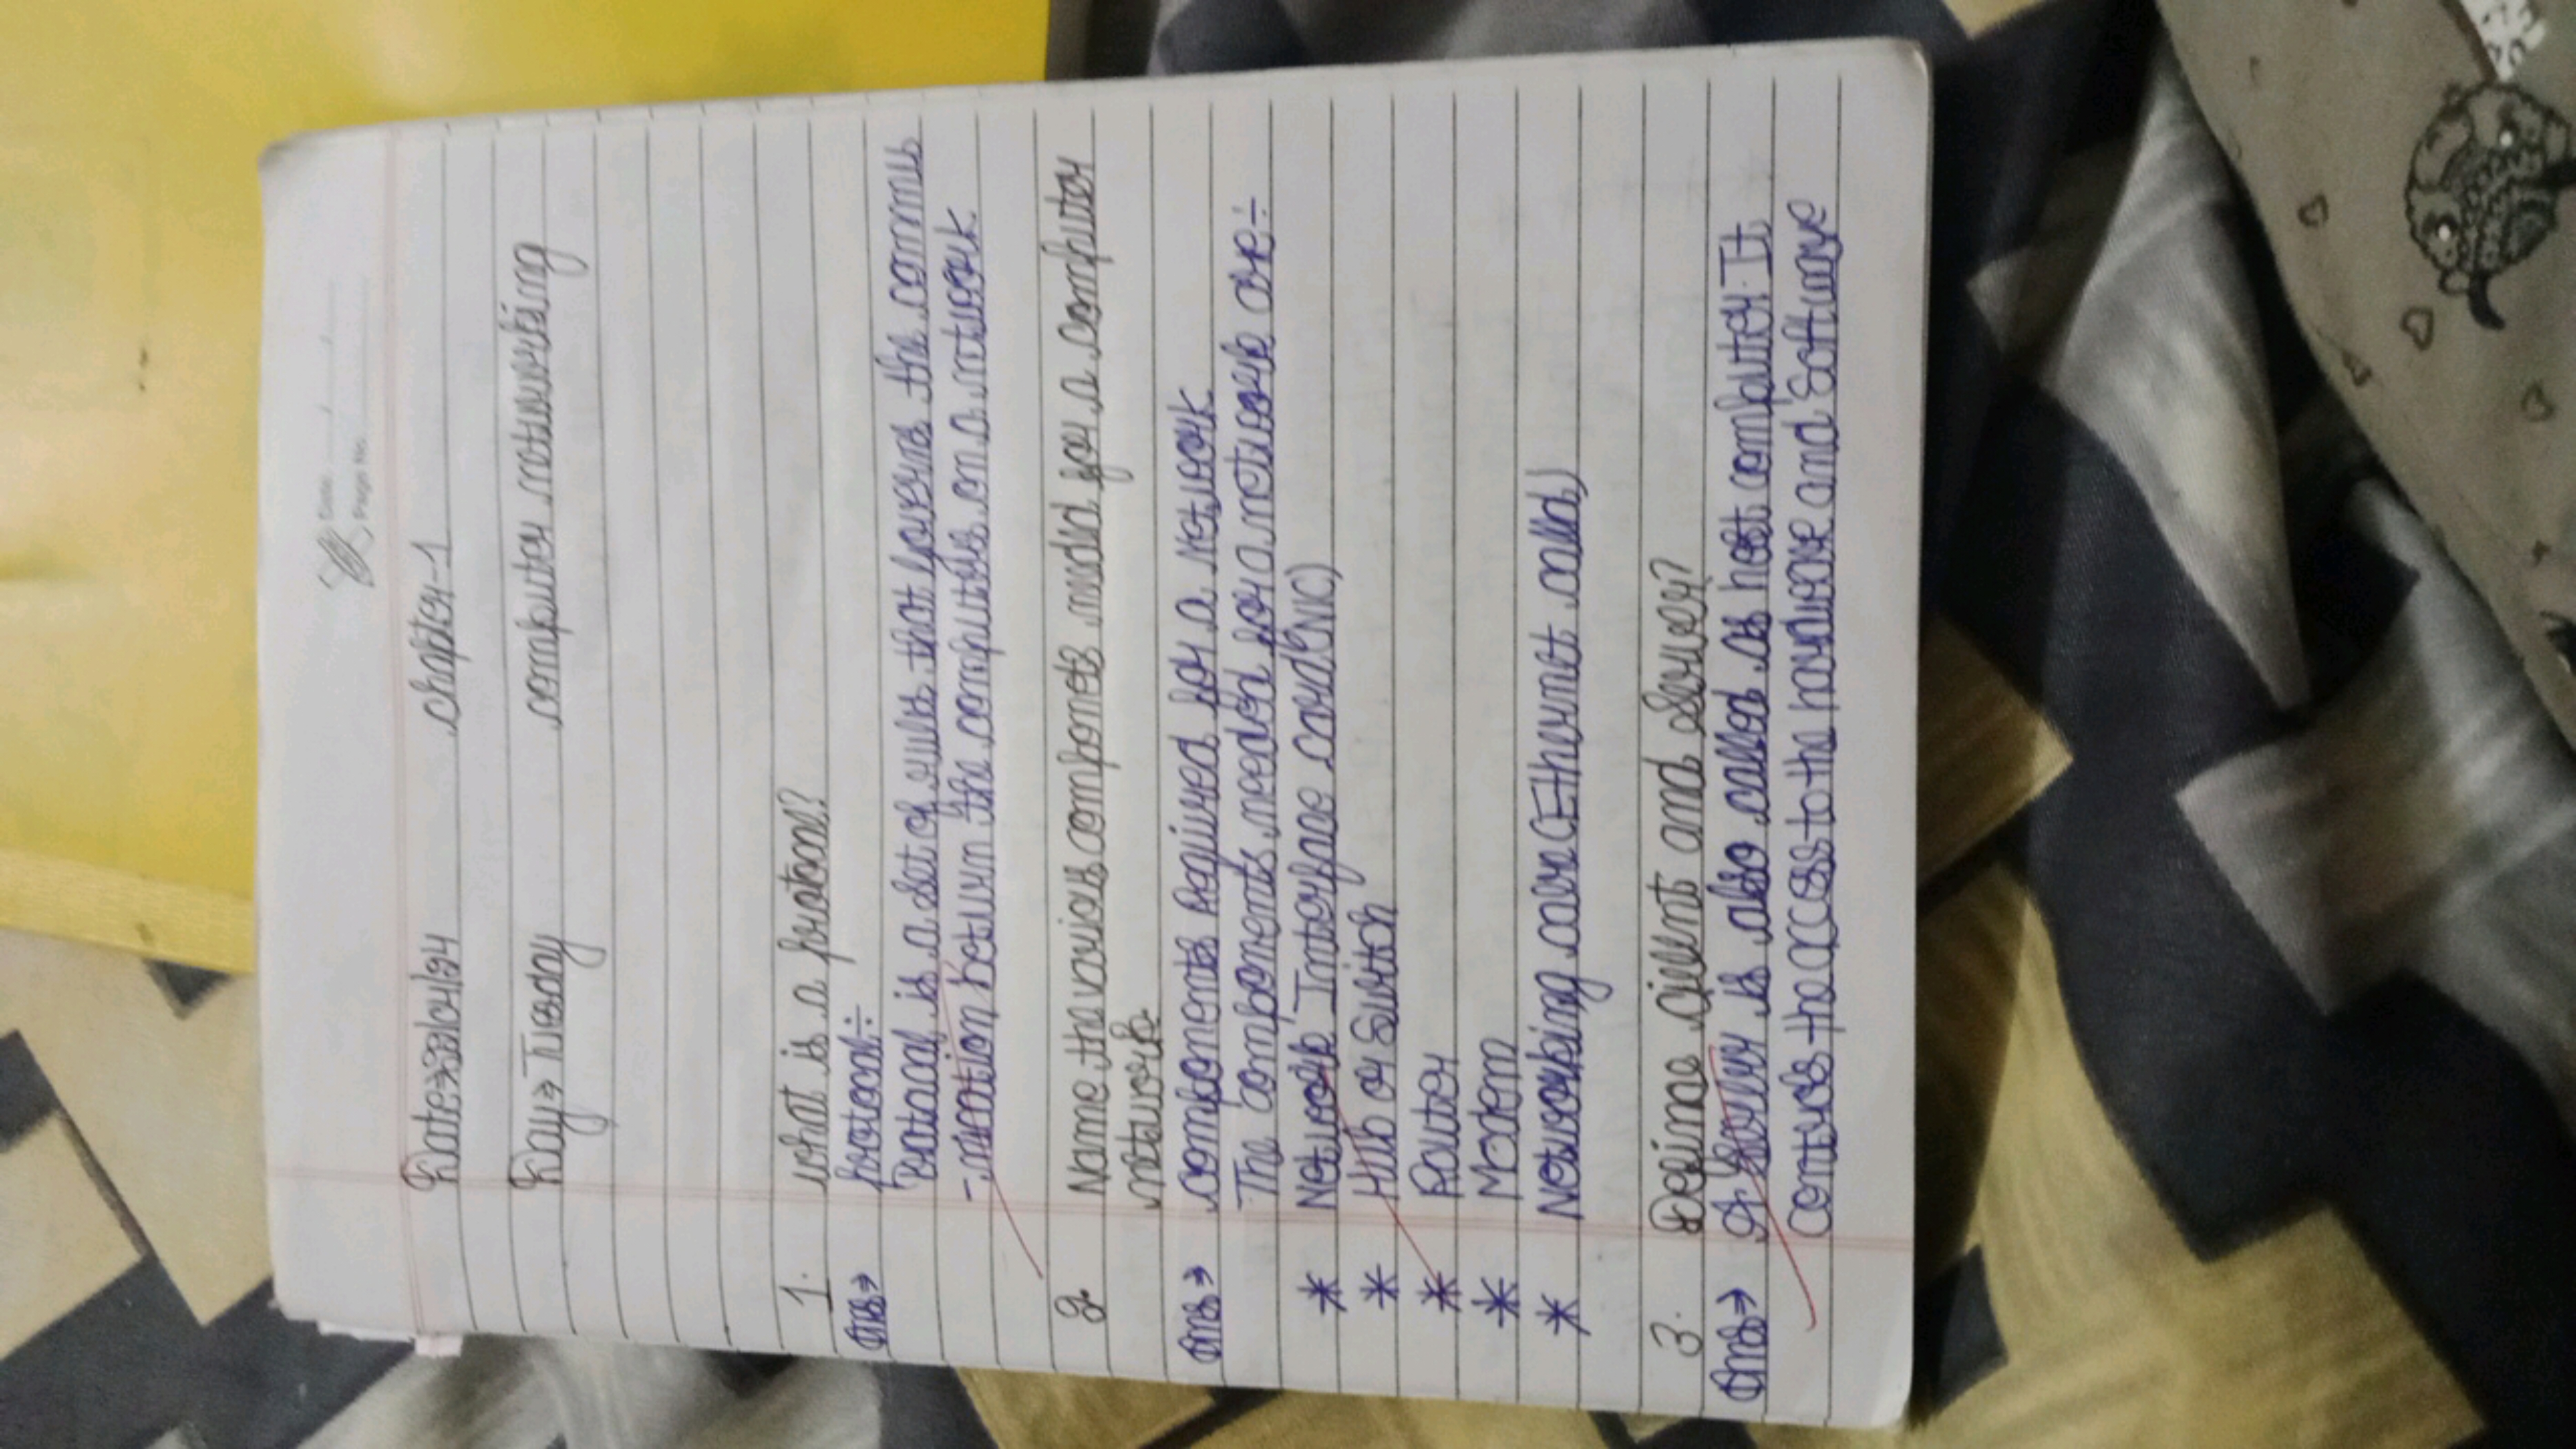 Date:
Page No.
chapter-1
Day⇒ Tuesday computer networking
1. what is a protocol?
Ans⇒ protocol÷
Protocol is a set of rules that governs the commu
-nication between the computers on a network.
2. Name the various componets needed for a computer
network.
Ans⇒ components Required for a network
The components needed for a network are÷
* Network Interface card(NIC)
* Hub or Switch
* Router
* Modem
* Networking (Ethernet
3. Define client and server?
Ans⇒ A Server is also called as host computer. It
controls the access to the hardware and Software